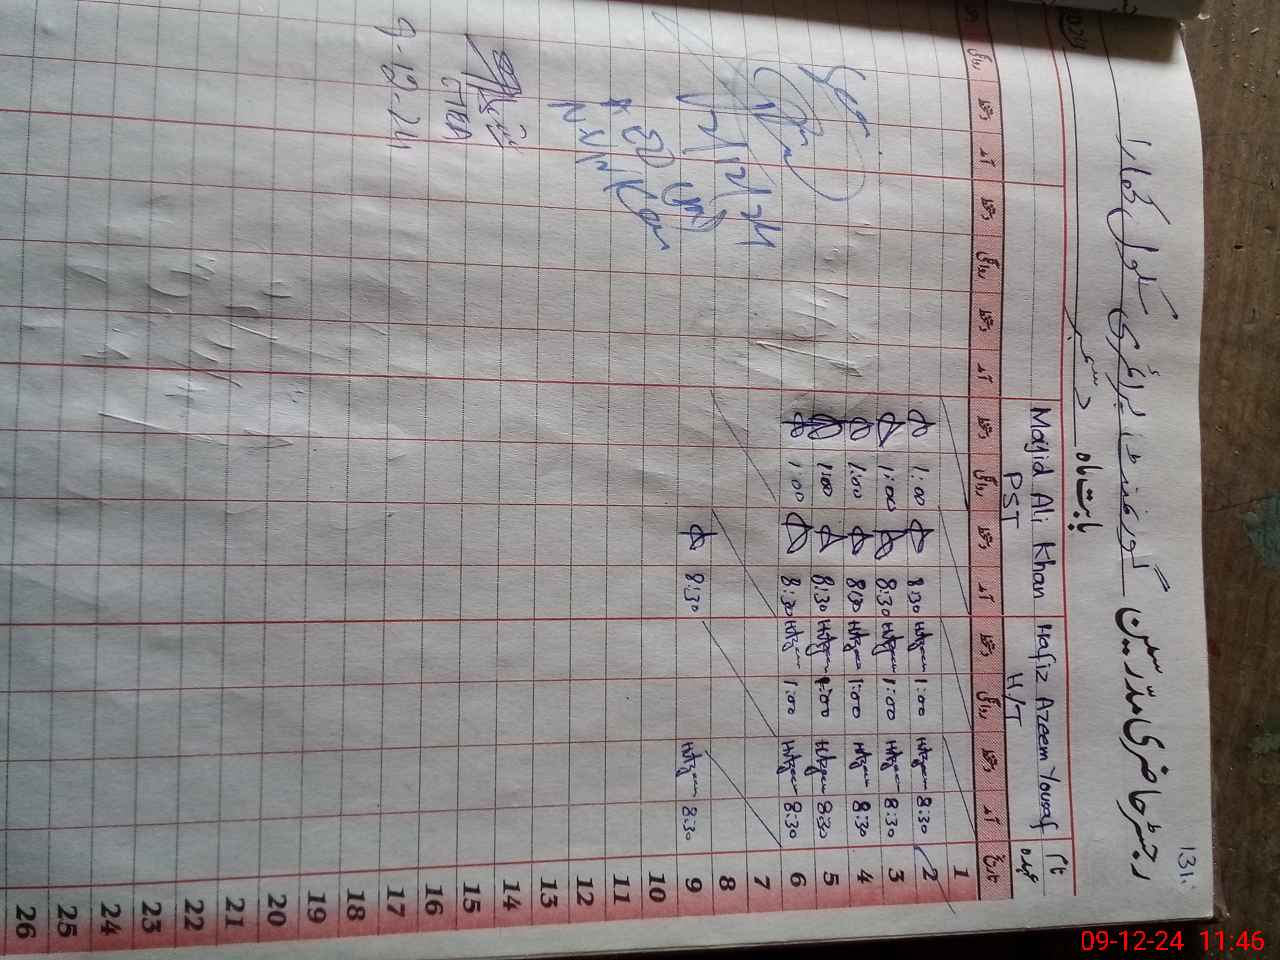 131
رجسٹر حاضری مدرسین گورنمنٹ پرائمری سکول
بابت ماہ دسمبر
نام Hafiz Azeem Yousaf Majid Ali Khan
عہدہ H/T PST
تاریخ آمد دستخط روانگی دستخط آمد دستخط روانگی دستخط آمد دستخط روانگی دستخط آمد دستخط روانگی
1
2 8:30 HAzeem 1:00 HAzeem 8:30 1:00
3 8:30 HAzeem 1:00 HAzeem 8:30 1:00
4 8:30 HAzeem 1:00 HAzeem 8:30 1:00
5 8:30 HAzeem 1:00 HAzeem 8:30 1:00
6 8:30 HAzeem 1:00 HAzeem 8:30 1:00
7
8
9 8:30 HAzeem 8:30
10
11
12
13
14
15
16
17
18
19
20
21
22
23
24
25
26
Seen
9-12-24
09-12-24 11:46